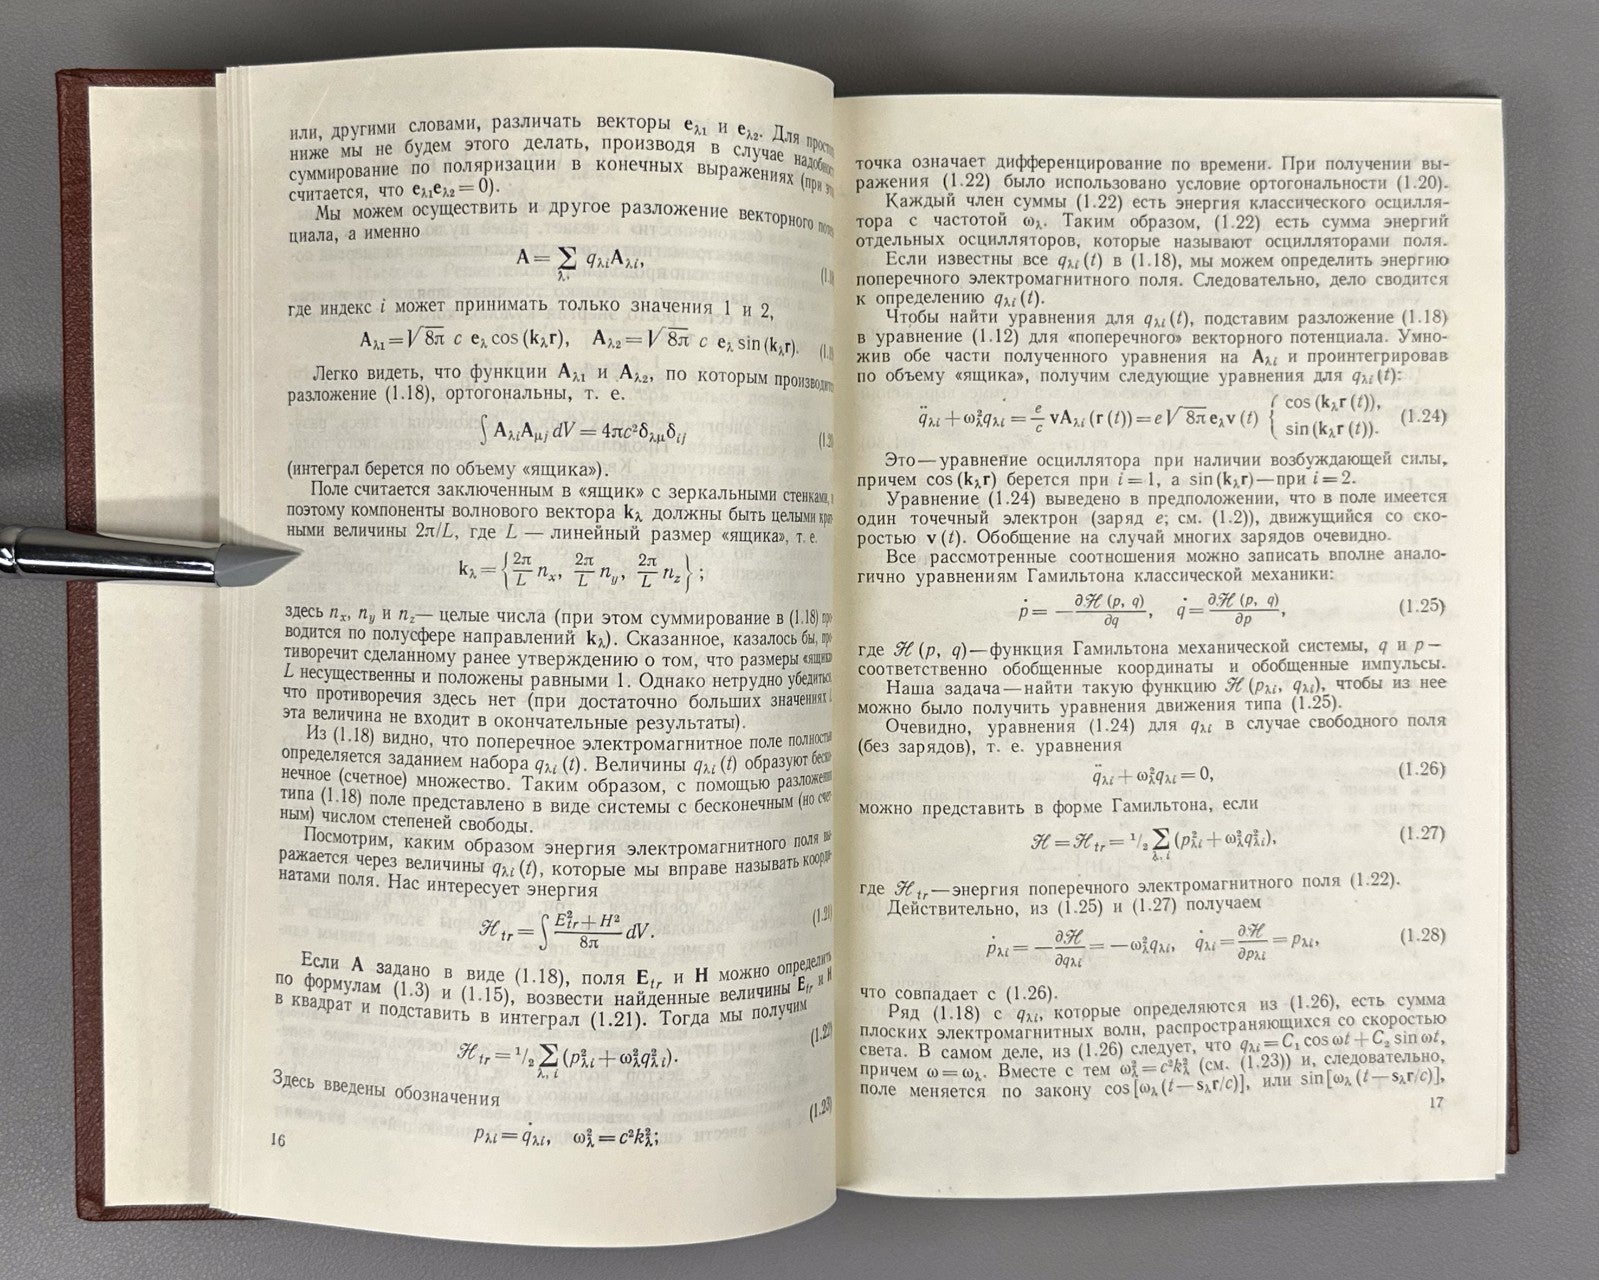 или, другими словами, различать векторы eλ1 и eλ2. Для
ниже мы не будем этого делать, производя в случае
суммирование по поляризации в конечных выражениях (при
считается, что eλ1eλ2 = 0).
Мы можем осуществить и другое разложение векторного
циала, а именно
A = ∑ qλiAλi,
λ,
где индекс i может принимать только значения 1 и 2,
Aλ1 = √8π c eλ cos (kλr), Aλ2 = √8π c eλ sin (kλr).
Легко видеть, что функции Aλ1 и Aλ2, по которым
разложение (1.18), ортогональны, т. е.
∫ AλiAμj dV = 4πc²δλμδij
(интеграл берется по объему «ящика»).
Поле считается заключенным в «ящик» с зеркальными стенками,
поэтому компоненты волнового вектора kλ должны быть целыми
ными величины 2π/L, где L — линейный размер «ящика», т. е.
kλ = {2π/L nx, 2π/L ny, 2π/L nz};
здесь nx, ny и nz — целые числа (при этом суммирование в (1.18)
водится по полусфере направлений kλ). Сказанное, казалось бы,
тиворечит сделанному ранее утверждению о том, что размеры
L несущественны и положены равными 1. Однако нетрудно убедиться
что противоречия здесь нет (при достаточно больших значениях
эта величина не входит в окончательные результаты).
Из (1.18) видно, что поперечное электромагнитное поле
определяется заданием набора qλi (t). Величины qλi (t) образуют
нечное (счетное) множество. Таким образом, с помощью
типа (1.18) поле представлено в виде системы с бесконечным (но
ным) числом степеней свободы.
Посмотрим, каким образом энергия электромагнитного поля
ражается через величины qλi (t), которые мы вправе называть
натами поля. Нас интересует энергия
ℋtr = ∫ (E²tr + H²)/8π dV. (1.21)
Если A задано в виде (1.18), поля Etr и H можно определить
по формулам (1.3) и (1.15), возвести найденные величины Etr и H
в квадрат и подставить в интеграл (1.21). Тогда мы получим
ℋtr = ¹/₂ ∑ (p²λi + ω²λq²λi). (1.22)
λ, i
Здесь введены обозначения
pλi = q̇λi, ω²λ = c²k²λ; (1.23)
16
точка означает дифференцирование по времени. При получении вы-
ражения (1.22) было использовано условие ортогональности (1.20).
Каждый член суммы (1.22) есть энергия классического осцилля-
тора с частотой ωλ. Таким образом, (1.22) есть сумма энергий
отдельных осцилляторов, которые называют осцилляторами поля.
Если известны все qλi (t) в (1.18), мы можем определить энергию
поперечного электромагнитного поля. Следовательно, дело сводится
к определению qλi (t).
Чтобы найти уравнения для qλi (t), подставим разложение (1.18)
в уравнение (1.12) для «поперечного» векторного потенциала. Умно-
жив обе части полученного уравнения на Aλi и проинтегрировав
по объему «ящика», получим следующие уравнения для qλi (t):
q̈λi + ω²λqλi = e/c vAλi (r (t)) = e√8π eλv (t) { cos (kλr (t)), sin (kλr (t)). (1.24)
Это — уравнение осциллятора при наличии возбуждающей силы,
причем cos (kλr) берется при i = 1, а sin (kλr) — при i = 2.
Уравнение (1.24) выведено в предположении, что в поле имеется
один точечный электрон (заряд e; см. (1.2)), движущийся со ско-
ростью v (t). Обобщение на случай многих зарядов очевидно.
Все рассмотренные соотношения можно записать вполне анало-
гично уравнениям Гамильтона классической механики:
ṗ = − ∂ℋ (p, q)/∂q, q̇ = ∂ℋ (p, q)/∂p, (1.25)
где ℋ (p, q) — функция Гамильтона механической системы, q и p —
соответственно обобщенные координаты и обобщенные импульсы.
Наша задача — найти такую функцию ℋ (pλi, qλi), чтобы из нее
можно было получить уравнения движения типа (1.25).
Очевидно, уравнения (1.24) для qλi в случае свободного поля
(без зарядов), т. е. уравнения
q̈λi + ω²λqλi = 0, (1.26)
можно представить в форме Гамильтона, если
ℋ = ℋtr = ¹/₂ ∑ (p²λi + ω²λq²λi), (1.27)
λ, i
где ℋtr — энергия поперечного электромагнитного поля (1.22).
Действительно, из (1.25) и (1.27) получаем
ṗλi = − ∂ℋ/∂qλi = − ω²λqλi, q̇λi = ∂ℋ/∂pλi = pλi, (1.28)
что совпадает с (1.26).
Ряд (1.18) с qλi, которые определяются из (1.26), есть сумма
плоских электромагнитных волн, распространяющихся со скоростью
света. В самом деле, из (1.26) следует, что qλi = C₁ cos ωt + C₂ sin ωt,
причем ω = ωλ. Вместе с тем ω²λ = c²k²λ (см. (1.23)) и, следовательно,
поле меняется по закону cos [ωλ (t — sλr/c)], или sin [ωλ (t — sλr/c)],
17